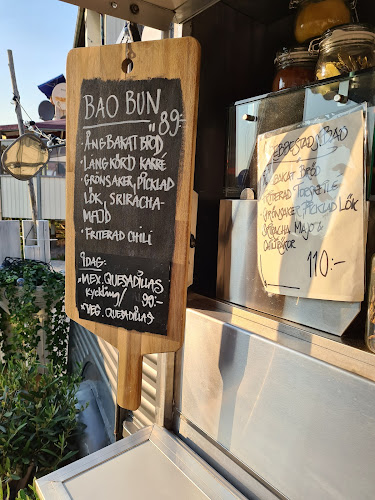 BAO BUN
89:-
• ÅNGBAKAT BRÖD
• LÅNGKÖRD KARRE
• GRÖNSAKER, PICKLAD
LÖK, SRIRACHA-
MAJO
• FRITERAD CHILI
IDAG:
• MEX. QUESADILLAS
KYCKLING/ 90:-
• VEG. QUESADILLAS
BAKAT BRÖD
FRITERAD
GRÖNSAKER, PICKLAD LÖK
SRIRACHA MAJO
110:-